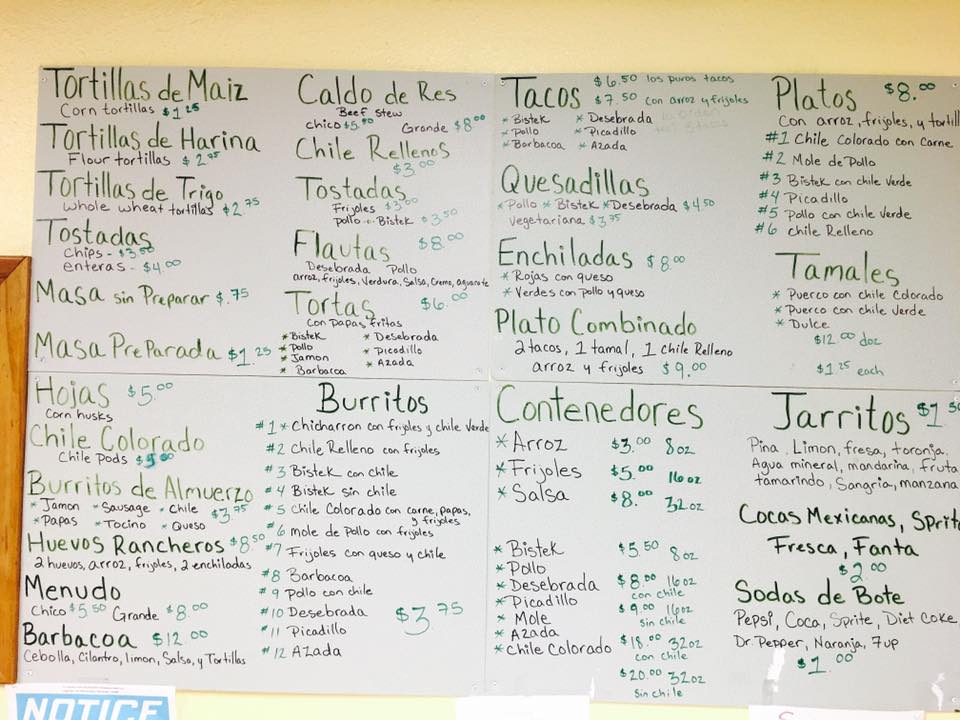 Tortillas de Maiz
Corn tortillas $1.25
Tortillas de Harina
Flour tortillas $2.75
Tortillas de Trigo
whole wheat tortillas $2.75
Tostadas
chips - $3.50
enteras - $4.00
Masa sin Preparar $.75
Masa Preparada $1.25
Caldo de Res
Beef stew
chico $5.50 Grande $8.00
Chile Rellenos
$3.00
Tostadas
Frijoles $3.00
pollo - Bistek $3.50
Flautas $8.00
Desebrada Pollo
arroz, frijoles, Verdura, Salsa, Crema, aguacate
Tortas $6.00
con papas fritas
* Bistek * Desebrada
* Pollo * Picodillo
* Jamon * Azada
* Barbacoa
Tacos $6.50 los puros tacos
$7.50 con arroz y frijoles
* Bistek * Desebrada
* Pollo * Picadillo
* Barbacoa * Azada
Quesadillas
* Pollo * Bistek * Desebrada $4.50
vegetariana $3.75
Enchiladas $8.00
* Rojas con queso
* Verdes con pollo y queso
Plato Combinado
2 tacos, 1 tamal, 1 Chile Relleno
arroz y frijoles $9.00
Platos $8.00
con arroz, frijoles, y tortill
#1 Chile Colorado con Carne
#2 Mole de Pollo
#3 Bistek con chile verde
#4 Picadillo
#5 Pollo con chile verde
#6 chile Relleno
Tamales
* Puerco con chile Colorado
* Puerco con chile Verde
* Dulce
$12.00 doz
$1.25 each
Hojas $5.00
Corn husks
Chile Colorado
Chile Pods
Burritos de Almuerzo
* Jamon * Sausage * Chile $3.75
* Papas * Tocino * Queso
Huevos Rancheros $8.50
2 huevos, arroz, frijoles, 2 enchiladas
Menudo
Chico $5.50 Grande $8.00
Barbacoa $12.00
Cebolla, Cilantro, limon, Salsa, y Tortillas
Burritos
#1 * Chicharron con frijoles y chile Verde
#2 Chile Relleno con frijoles
#3 Bistek con chile
#4 Bistek sin chile
#5 Chile Colorado con carne, papas, y frijoles
#6 mole de Pollo con frijoles
#7 Frijoles con queso y chile
#8 Barbacoa
#9 Pollo con chile
#10 Desebrada $3.75
#11 Picadillo
#12 AZada
Contenedores
* Arroz $3.00 8oz
* Frijoles $5.00 16oz
* Salsa $8.00 32oz
* Bistek $5.50 8oz
* Pollo
* Desebrada $8.00 16oz
con chile
* Picadillo
* Mole $9.00 16oz
sin chile
* Azada
* Chile Colorado $18.00 32oz
con chile
$20.00 32oz
Sin chile
Jarritos $1.50
Pina. Limon, fresa, toronja.
Agua mineral, mandarina, fruta
tamarindo, Sangria, manzana
Cocas Mexicanas, Sprit
Fresca, Fanta
$2.00
Sodas de Bote
Pepsi, Coca, Sprite, Diet Coke
Dr. Pepper, Naranja, 7up
$1.00
NOTICE